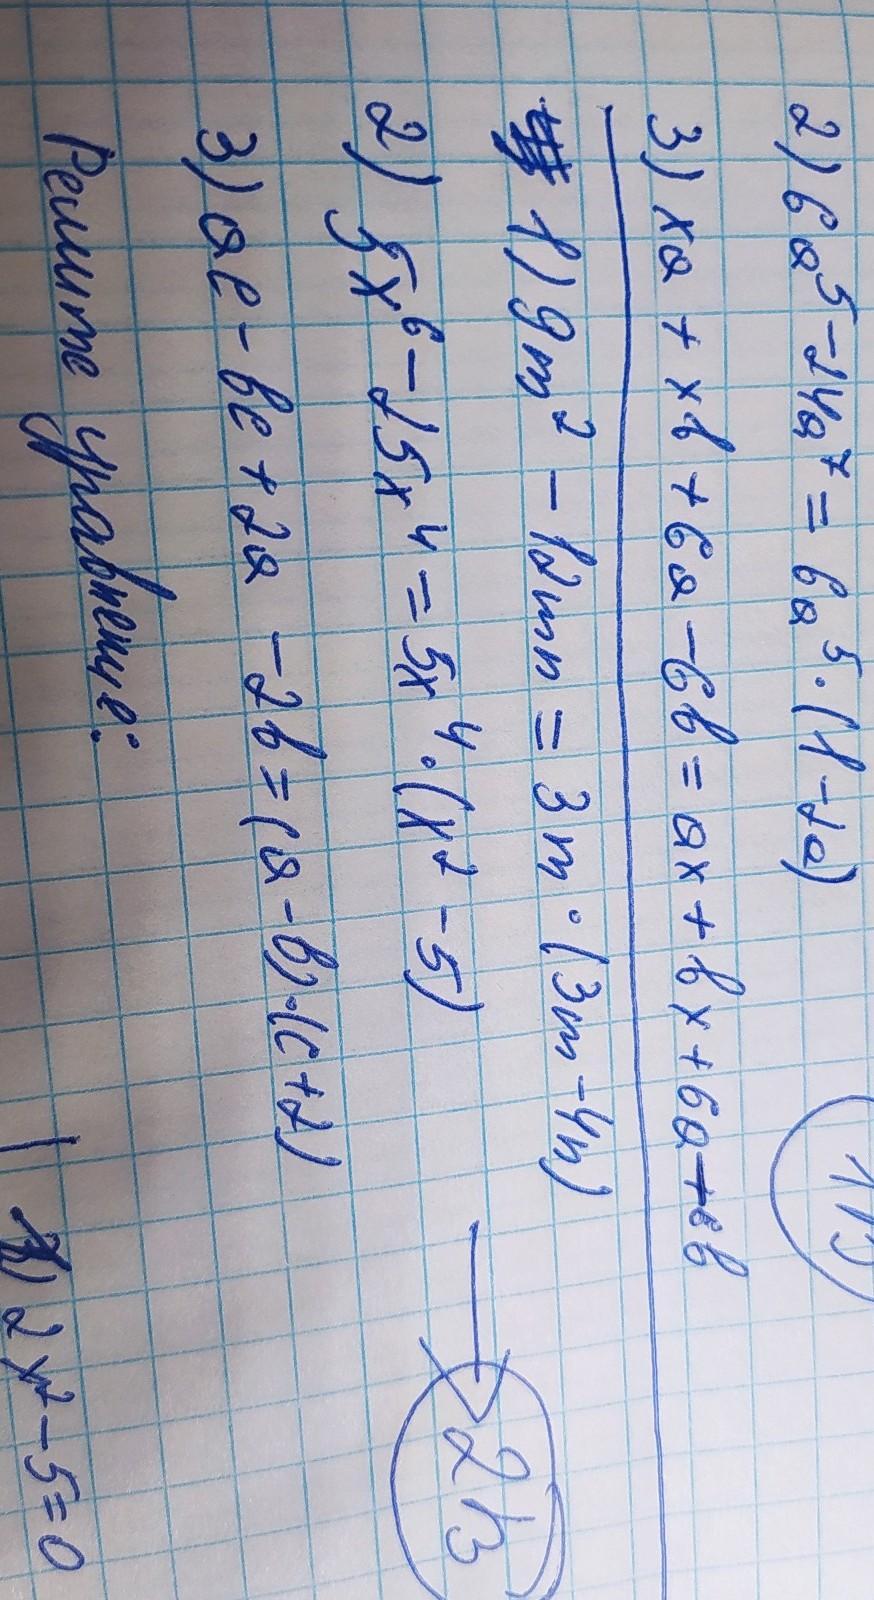 2) 6a⁵ - 24a⁷ = 6a⁵ · (1 - 2a)
1 B
3) xa + xb + 6a - 6b = ax + bx + 6a - 6b
1) 9m² - 12mn = 3m · (3m - 4n)
2) 5x⁶ - 25x⁴ = 5x⁴ · (x² - 5)
2 B
3) ac - bc + 2a - 2b = (a - b) · (c + 2)
Решите уравнение:
1) 2x² - 5 = 0